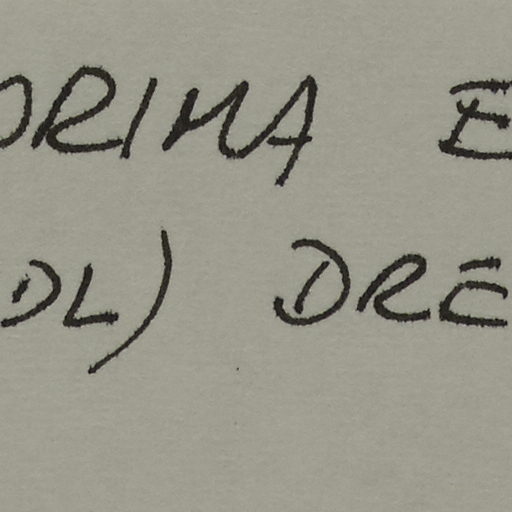 ORIMA E
DL) DRE